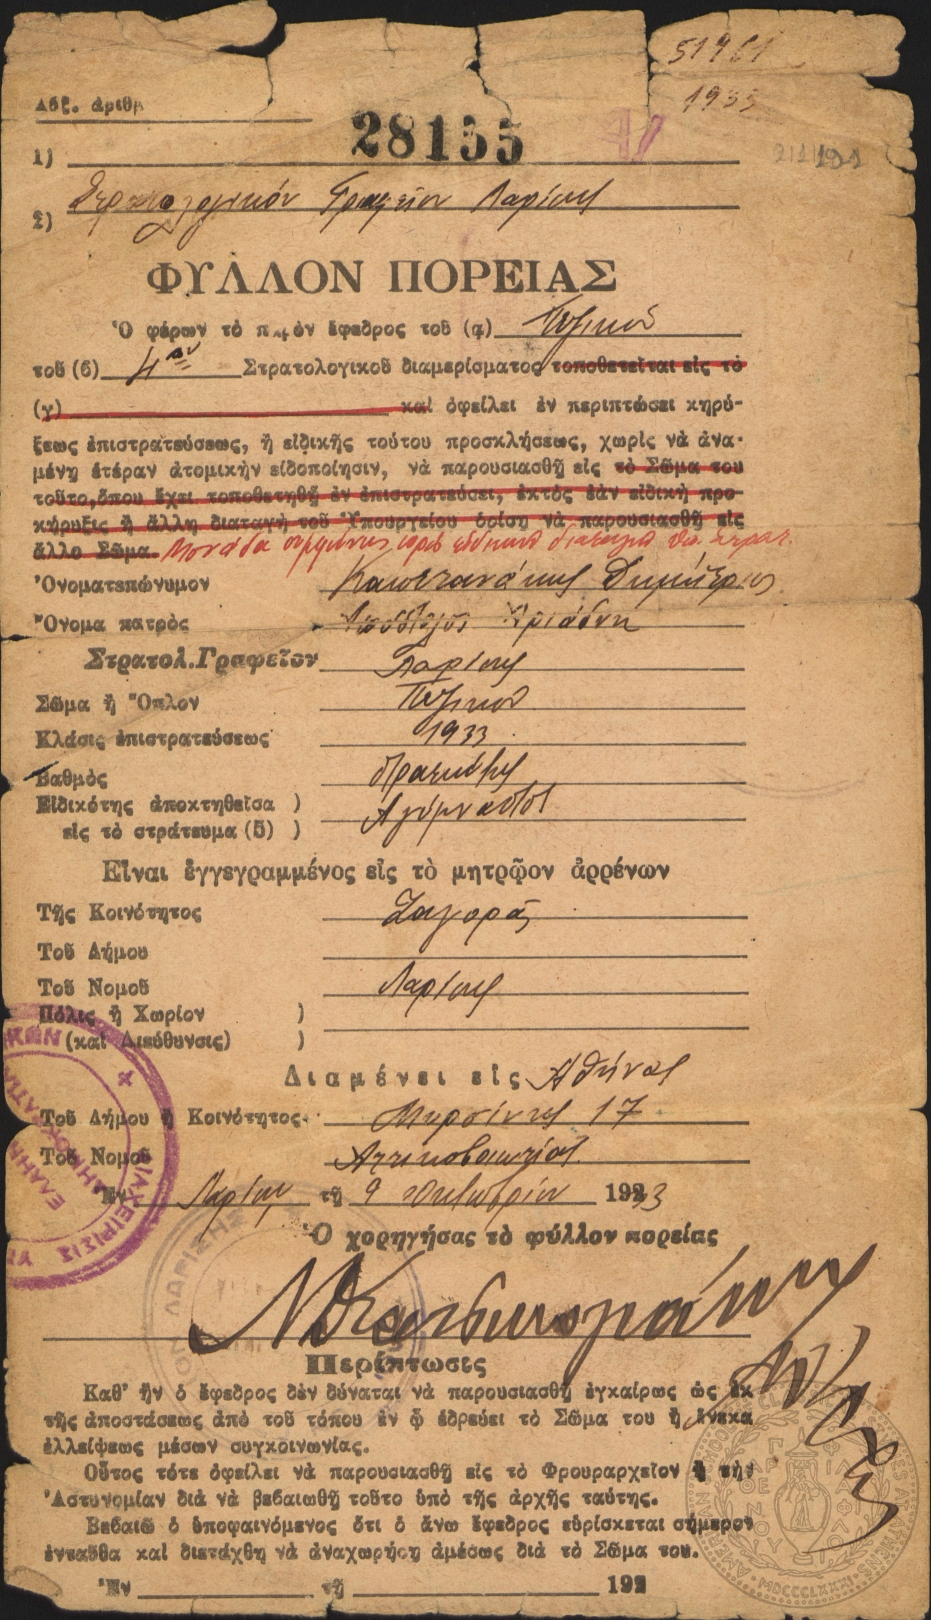 51761
1933
Αὔξ. ἀριθμ
28155
1)
2) Στρατολογικόν Γραφεῖον Λαρίσης
ΦΥΛΛΟΝ ΠΟΡΕΙΑΣ
Ὁ φέρων τὸ παρὸν ἔφεδρος τοῦ (α) Πεζικοῦ
τοῦ (6) 4ου Στρατολογικοῦ διαμερίσματος τοποθετεῖται εἰς τὸ
(γ) καὶ ὀφείλει ἐν περιπτώσει κηρύ-
ξεως ἐπιστρατεύσεως, ἢ εἰδικῆς τούτου προσκλήσεως, χωρὶς νὰ ἀνα-
μένῃ ἑτέραν ἀτομικὴν εἰδοποίησιν, νὰ παρουσιασθῇ εἰς τὸ Σῶμα του
τοῦτο, ὅπου ἔχει τοποθετηθῇ ἐν ἐπιστρατεύσει, ἐκτὸς ἐὰν εἰδικὴ προ-
κήρυξις ἢ ἄλλη διαταγὴ τοῦ Ὑπουργείου ὁρίσῃ νὰ παρουσιασθῇ εἰς
ἄλλο Σῶμα. Μονάδα
Ὀνοματεπώνυμον Καπετανάκης Δημήτριος
Ὄνομα πατρὸς Ἀπόστολος Ἀριάδνη
Στρατολ. Γραφεῖον Λαρίσης
Σῶμα ἢ Ὅπλον Πεζικοῦ
Κλάσις ἐπιστρατεύσεως 1933
Βαθμὸς Στρατιώτης
Εἰδικότης ἀποκτηθεῖσα )
εἰς τὸ στράτευμα (5) ) Ἀγύμναστος
Εἶναι ἐγγεγραμμένος εἰς τὸ μητρῷον ἀρρένων
Τῆς Κοινότητος Ζαγορᾶς
Τοῦ Δήμου
Τοῦ Νομοῦ Λαρίσης
Πόλις ἢ Χωρίον )
(καὶ Διεύθυνσις) )
Διαμένει εἰς Ἀθήνας
Τοῦ Δήμου ἢ Κοινότητος 17
Τοῦ Νομοῦ Ἀττικοβοιωτίας
Ἐν Λαρίσῃ τῇ 9 Ὀκτωβρίου 1933
Ὁ χορηγήσας τὸ φύλλον πορείας
Περίπτωσις
Καθ' ἣν ὁ ἔφεδρος δὲν δύναται νὰ παρουσιασθῇ ἐγκαίρως ὡς ἐκ
τῆς ἀποστάσεως ἀπὸ τοῦ τόπου ἐν ᾧ ἑδρεύει τὸ Σῶμα του ἢ ἕνεκα
ἐλλείψεως μέσων συγκοινωνίας.
Οὗτος τότε ὀφείλει νὰ παρουσιασθῇ εἰς τὸ Φρουραρχεῖον ἢ τὴν
Ἀστυνομίαν διὰ νὰ βεβαιωθῇ τοῦτο ὑπὸ τῆς ἀρχῆς ταύτης.
Βεβαιῶ ὁ ὑποφαινόμενος ὅτι ὁ ἄνω ἔφεδρος εὑρίσκεται σήμερον
ἐνταῦθα καὶ διετάχθη νὰ ἀναχωρήσῃ ἀμέσως διὰ τὸ Σῶμα του.
Ἐν τῇ 192
MDCCCLXXXI